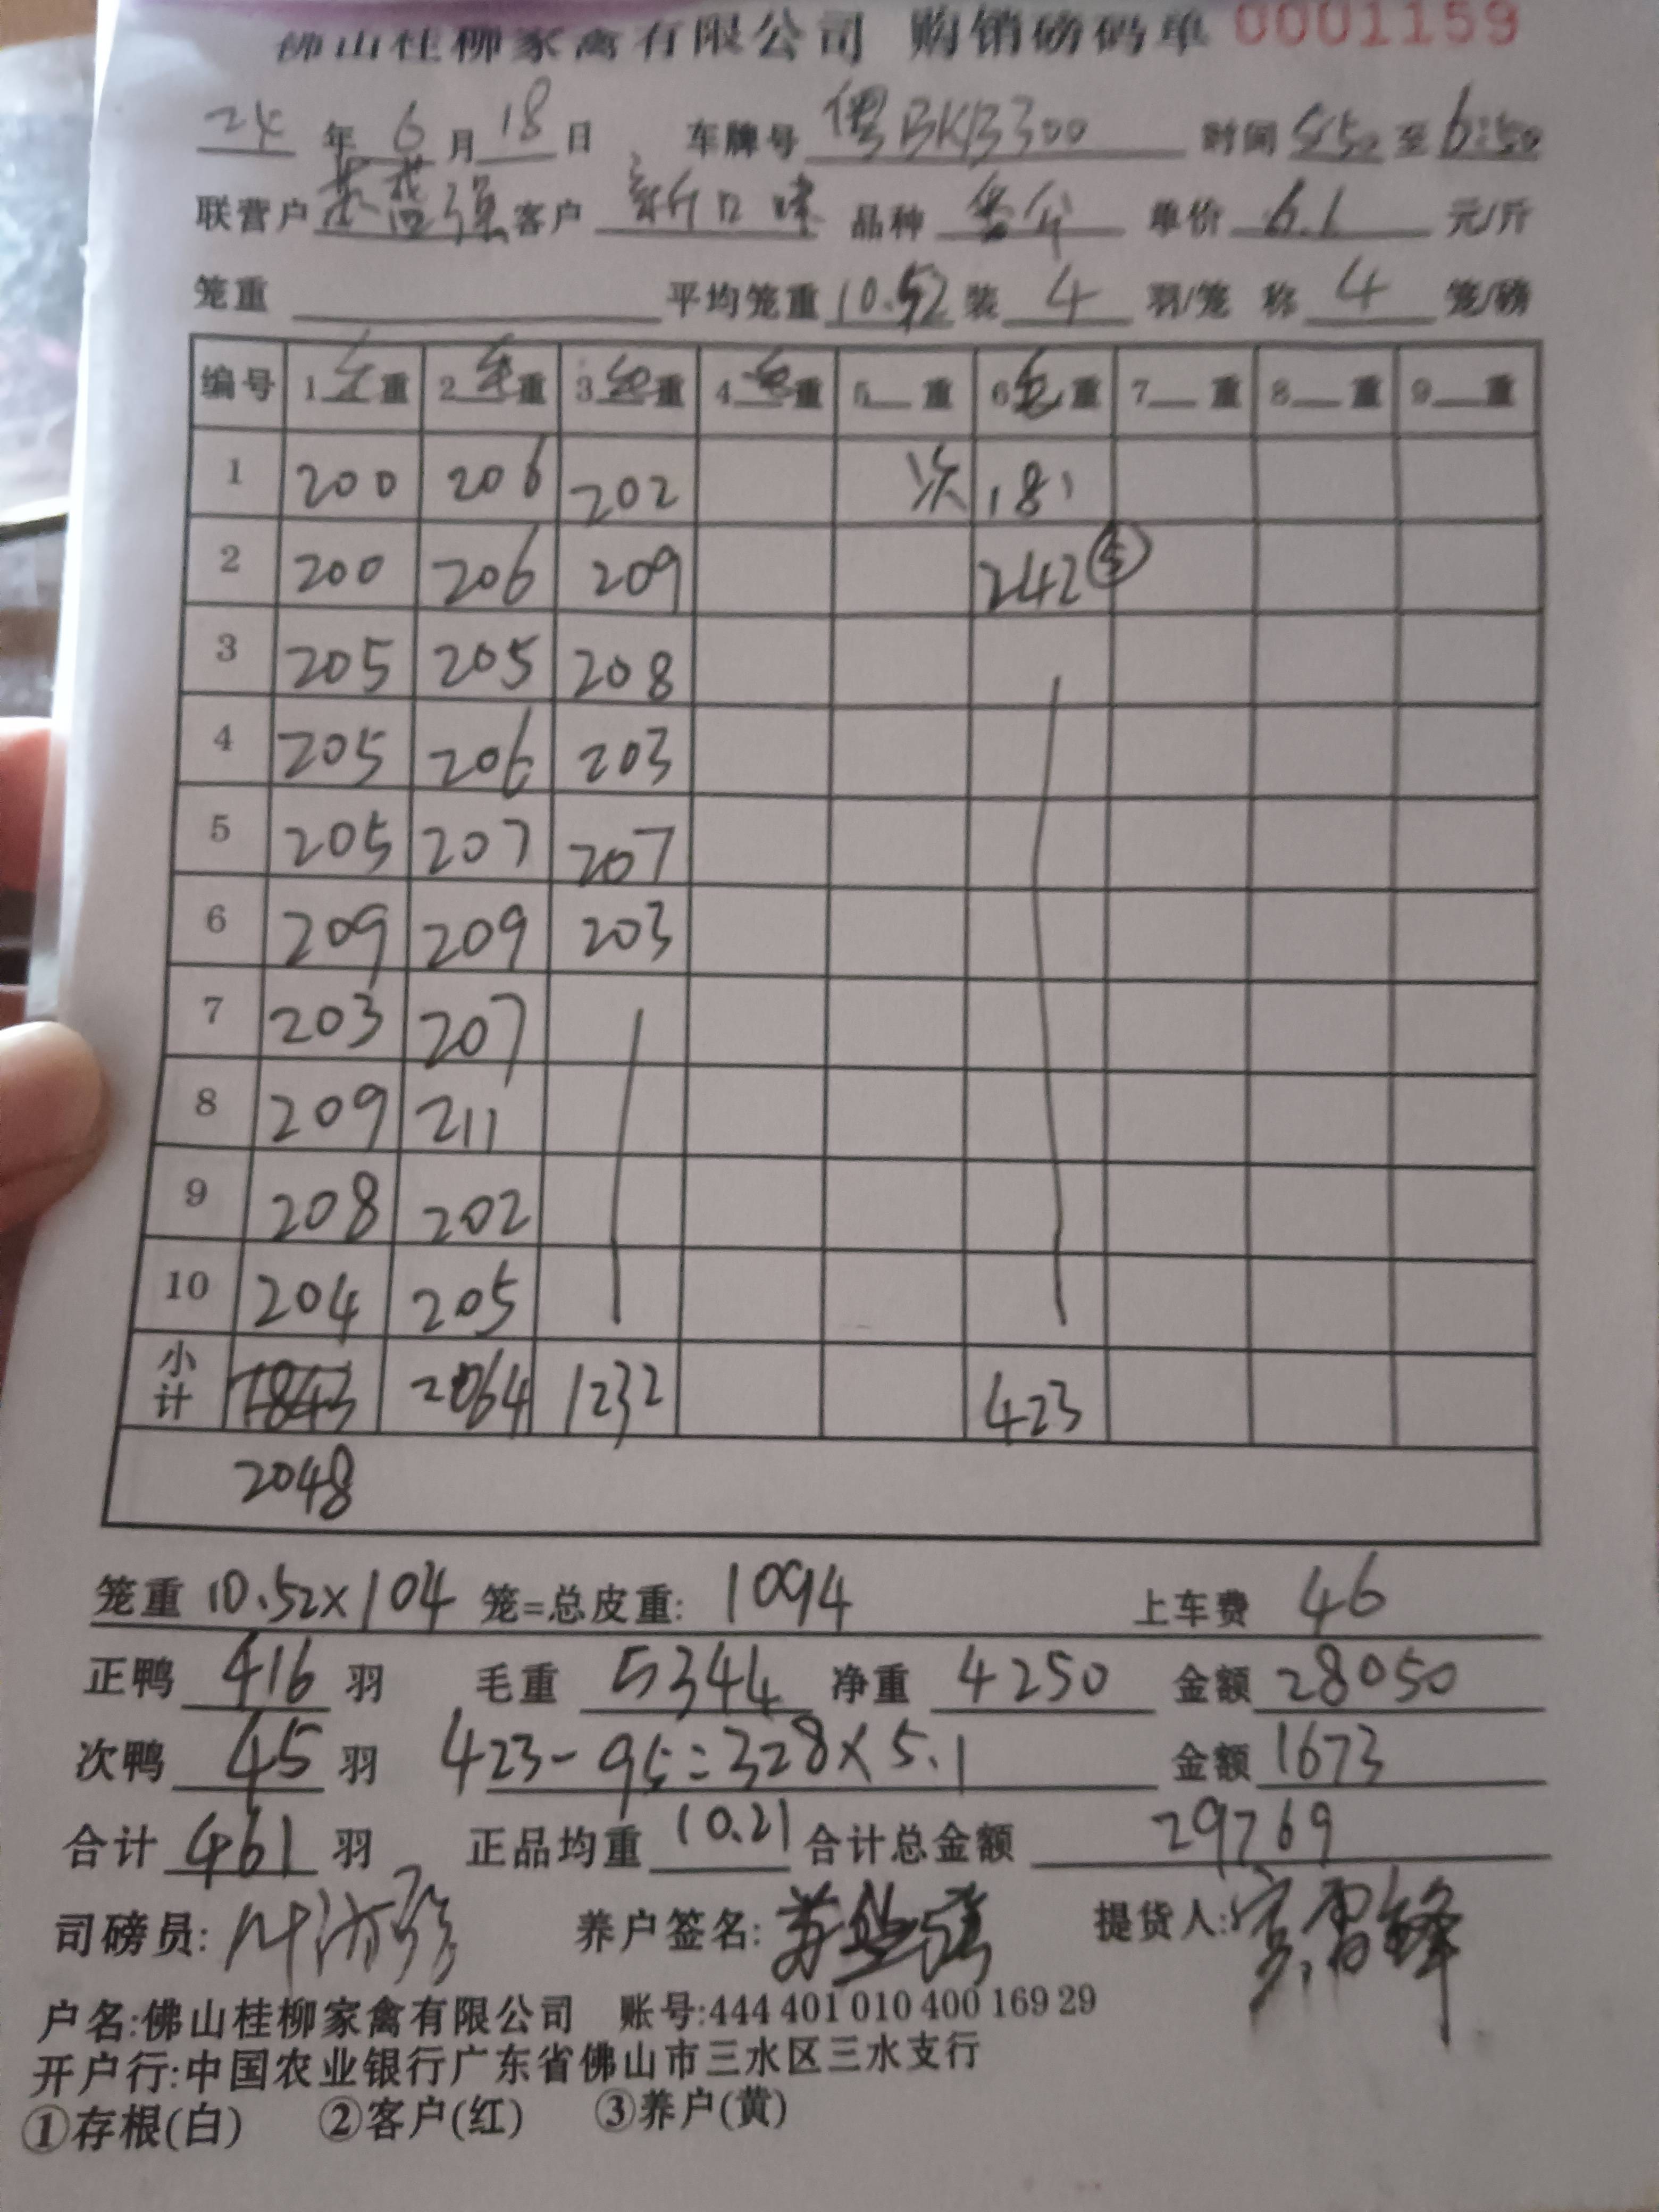 佛山桂柳家禽有限公司 购销磅码单 0001159
24年6月18日 车牌号 BKB300 时间 5:50 至 6:50
联营户 客户 新口味 品种 单价 6.6 元/斤
笼重 平均笼重 10.52 装 4 羽/笼 称 4 笼/磅
编号 1 重 2 重 3 重 4 重 5 重 6 重 7 重 8 重 9 重
1 200 206 202 次 181
2 200 206 209 242 ⑤
3 205 205 208
4 205 206 203
5 205 207 207
6 209 209 203
7 203 207
8 209 211
9 208 202
10 204 205
小计 1843 2064 1232 423
2048
笼重 10.52×104 笼=总皮重: 1094 上车费 46
正鸭 416 羽 毛重 5344 净重 4250 金额 28050
次鸭 45 羽 423-95=328×5.1 金额 1673
合计 461 羽 正品均重 10.21 合计总金额 29769
司磅员: 养户签名: 提货人:
户名:佛山桂柳家禽有限公司 账号:444 401 010 400 169 29
开户行:中国农业银行广东省佛山市三水区三水支行
①存根(白) ②客户(红) ③养户(黄)